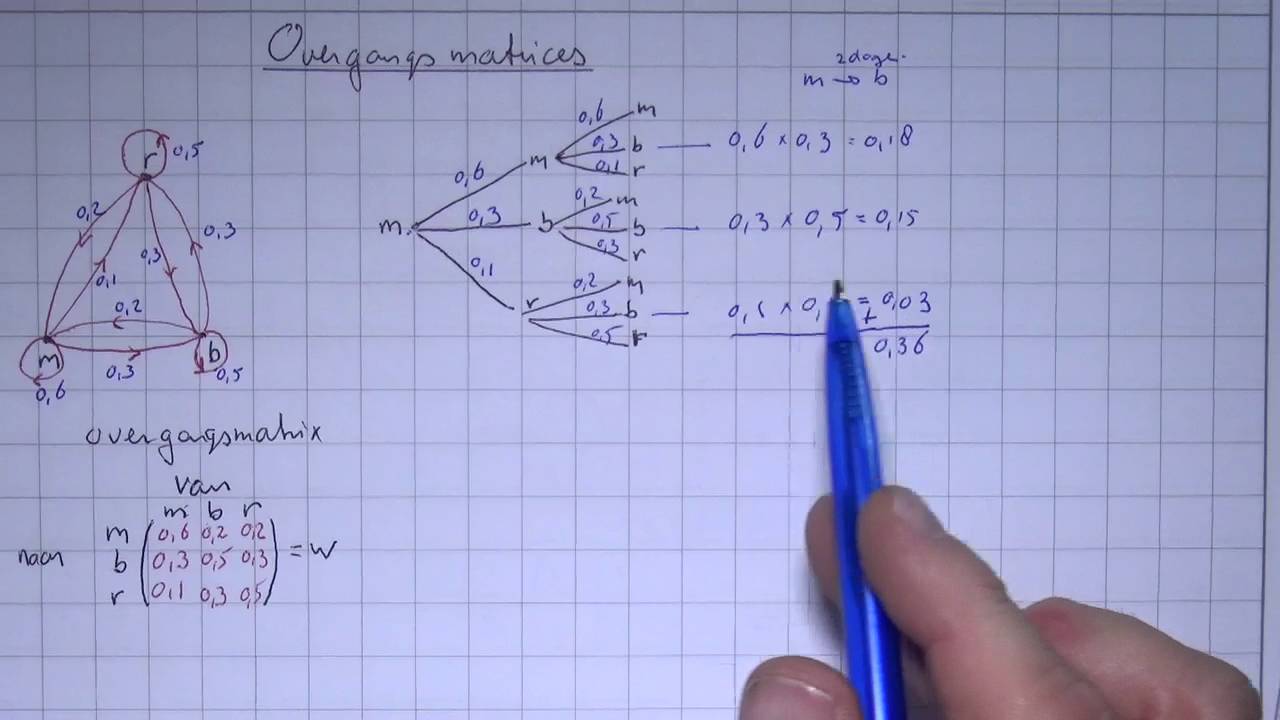 Overgangsmatrices
2 dage.
m → b
r 0,5
0,2
0,1
0,3
0,3
0,2
m
b
0,3
0,6
0,5
m
0,6
0,3
0,1
m
0,6 m
0,3 b
0,1 r
b
0,2 m
0,5 b
0,3 r
r
0,2 m
0,3 b
0,5 r
0,6 × 0,3 = 0,18
0,3 × 0,5 = 0,15
0,1 × 0, = 0,03
+
0,36
overgangsmatrix
van
m b r
m 0,6 0,2 0,2
naar b 0,3 0,5 0,3 = W
r 0,1 0,3 0,5